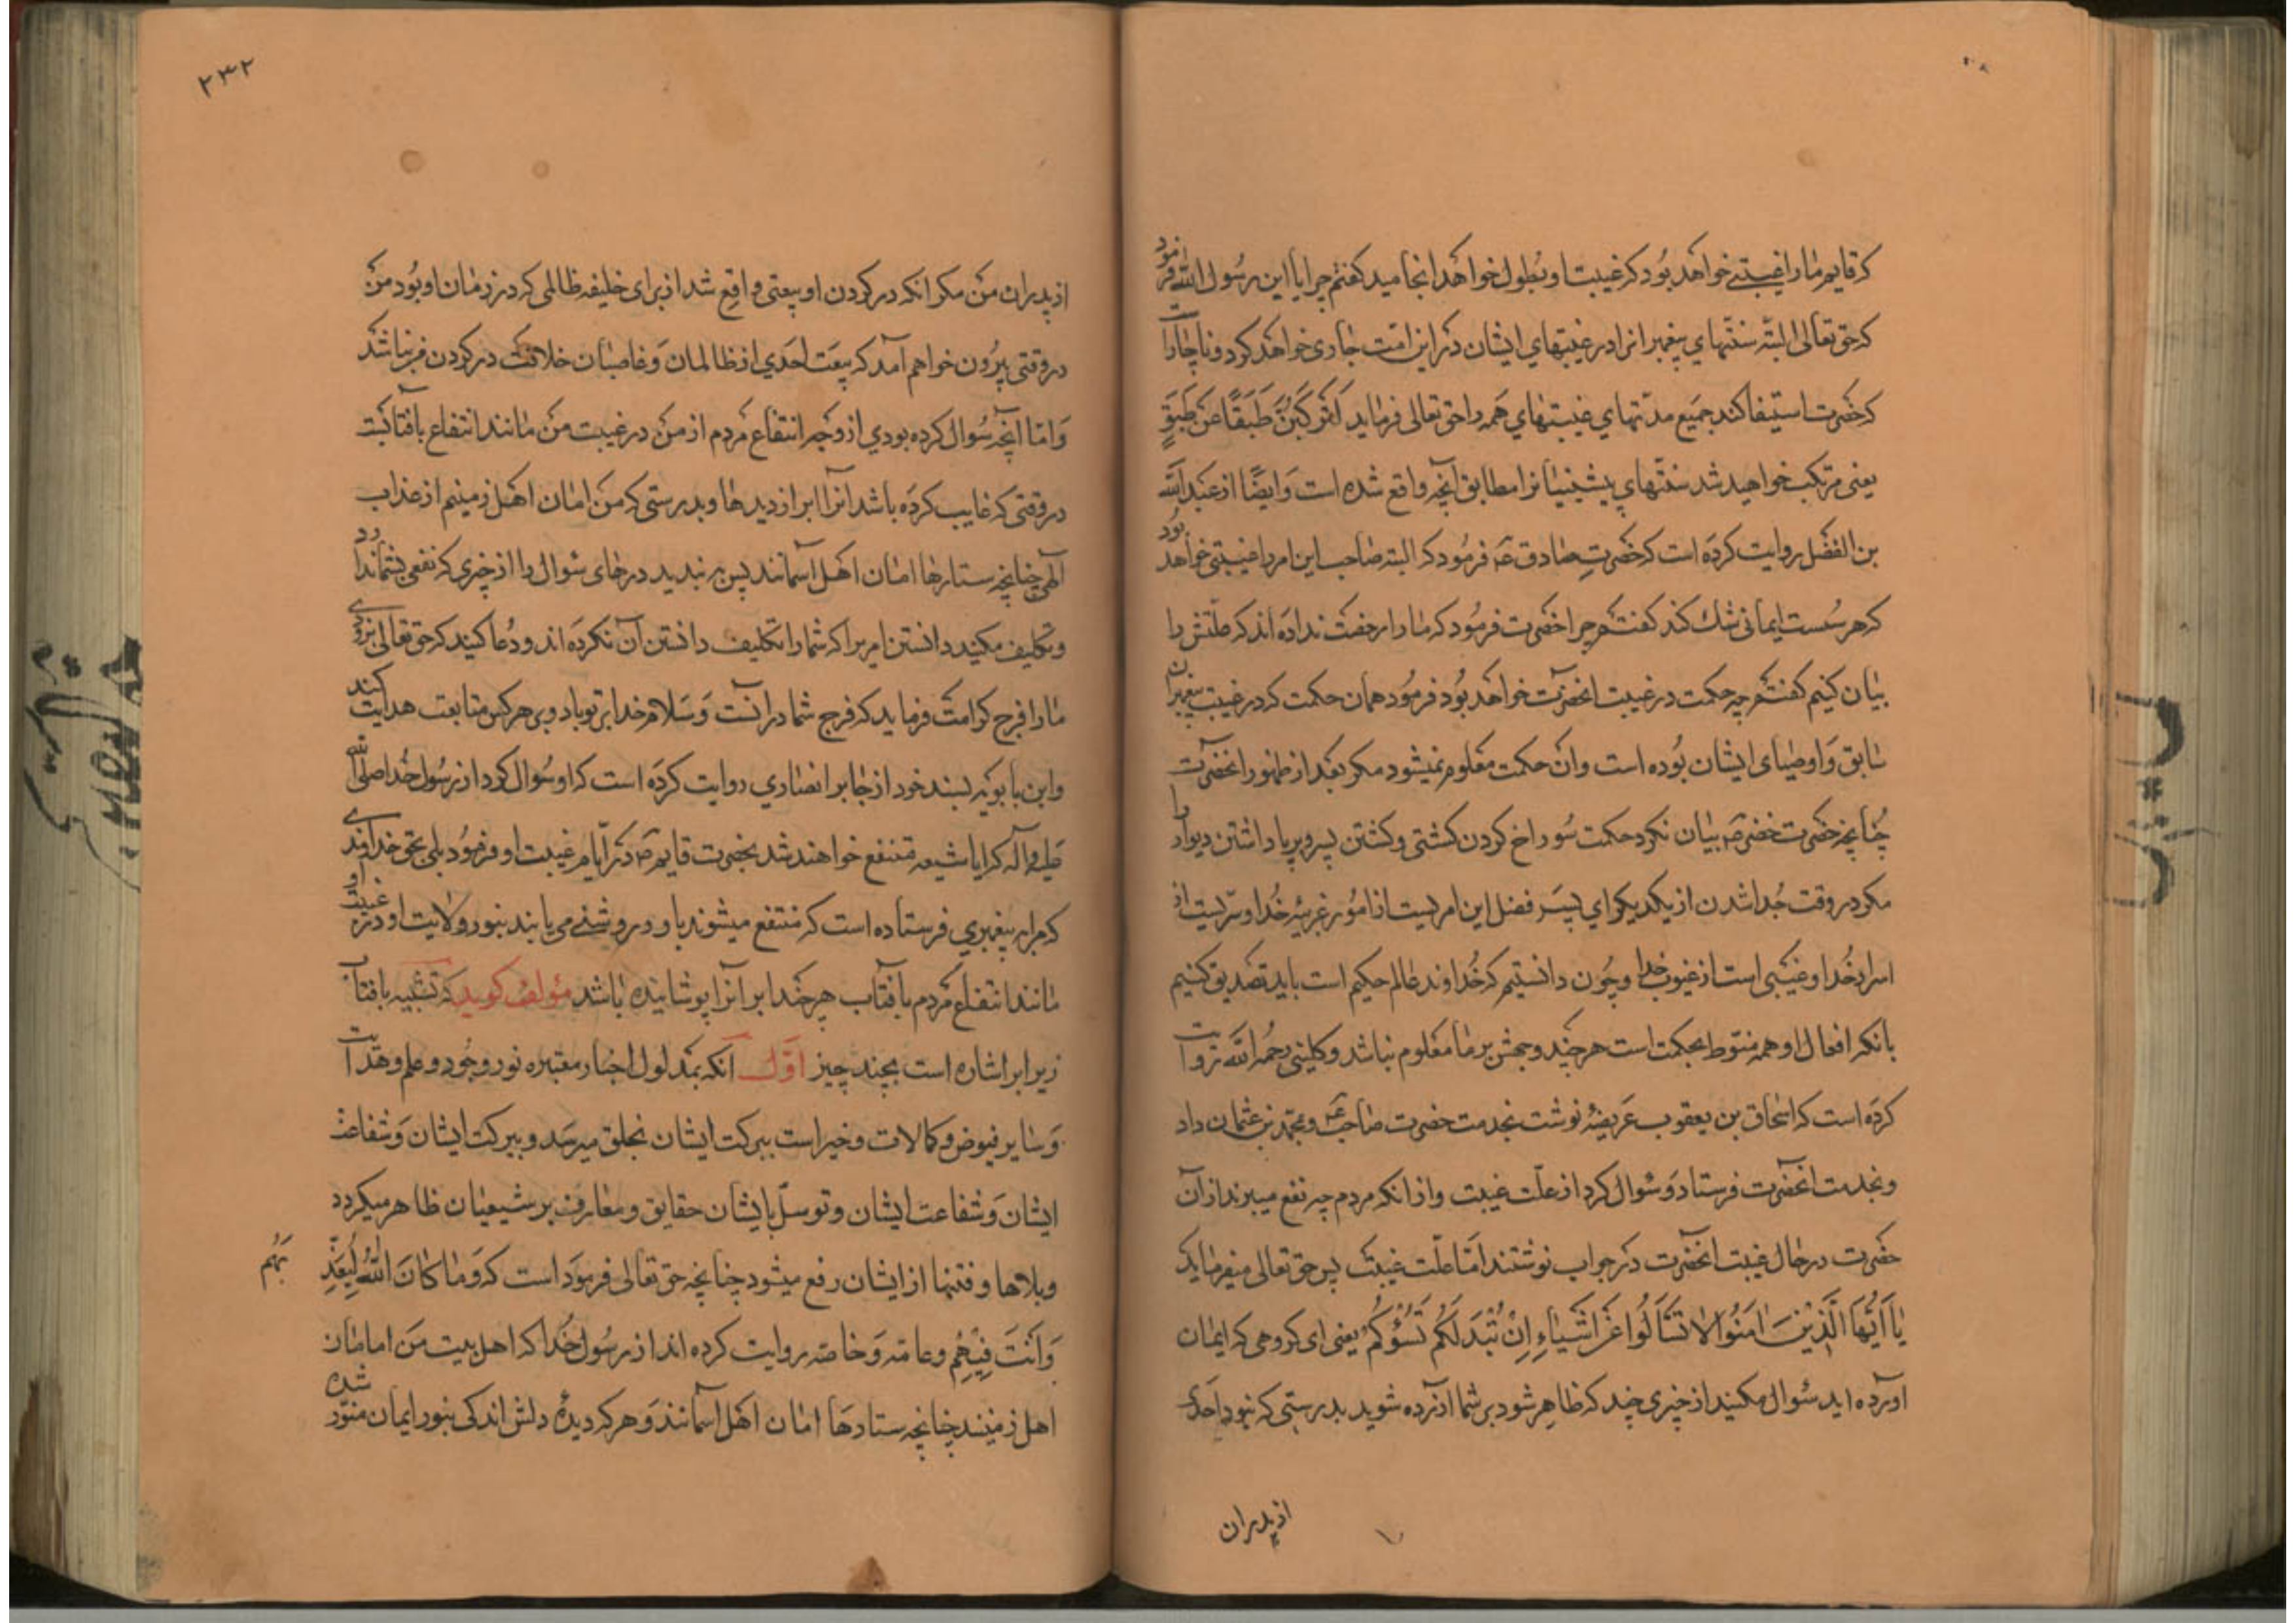 که قایم ما را غیبتی خواهد بود که غیبت او بطول خواهد انجامید کفتم چرا یا ابن رسول الله فرمود
که حق تعالی البته سنتهای پیغمبرانرا در غیبتهای ایشان در این امت جاری خواهد کرد و ناچار است
که حضرت استیفا کند جمیع مدتهای غیبتهای همه را حق تعالی فرماید لَتَرْكَبُنَّ طَبَقًا عَنْ طَبَقٍ
یعنی مرتکب خواهید شد سنتهای پیشینیانرا مطابق آنچه واقع شده است وَ ایضًا از عبد الله
بن الفضل روایت کرده است که حضرت صادق ع فرمود که البته صاحب این امر را غیبتی خواهد بود
که هر سست ایمانی شک کند کفتم چرا حضرت فرمود که ما را رخصت نداده اند که علتش را
بیان کنیم کفتم چه حکمت در غیبت انحضرت خواهد بود فرمود همان حکمت که در غیبت پیغمبران
سابق وَ اوصیای ایشان بوده است وان حکمت معلوم نمیشود مکر بعد از ظهور انحضرت
چنانچه حضرت خضر ع بیان نکرد حکمت سوراخ کردن کشتی و کشتن پسر و برپا داشتن دیوار را
مکر در وقت جدا شدن از یکدیکر ای پسر فضل این امریست از امور غریبه خدا و سریست از
اسرار خدا و غیبی است از غیوب خدا و چون دانستیم که خداوند عالم حکیم است باید تصدیق کنیم
بانکه افعال او همه منوط بحکمت است هر چند وجهش بر ما معلوم نباشد و کلینی رحمه الله روایت
کرده است که اسحاق بن یعقوب عریضه نوشت بخدمت حضرت صاحب ع و محمد بن عثمان داد
و بخدمت انحضرت فرستاد وَ سوال کرد از علت غیبت و از انکه مردم چه نفع میبرند از آن
حضرت در حال غیبت انحضرت در جواب نوشتند اما علت غیبت پس حق تعالی میفرماید که
یَا اَیُّهَا الَّذِیْنَ امَنُوا لَا تَسْاَلُوا عَنْ اَشْیَاءِ اِنْ تُبْدَ لَکُمْ تَسُؤْکُمْ یعنی ای کروهی که ایمان
آورده اید سوال مکنید از چیزی چند که ظاهر شود بر شما آزرده شوید بدرستی که نبود احدی
از پدران
۲۳۲
از پدران من مکر انکه در کردن او بیعتی واقع شد از برای خلیفه ظالمی که در زمان او بود من
در وقتی بیرون خواهم آمد که بیعت احدی از ظالمان وَ غاصبان خلافت در کردن من نباشد
وَ اما آنچه سوال کرده بودی از وجه انتفاع مردم از من در غیبت من مانند انتفاع بافتابست
در وقتی که غایب کرده باشد انرا ابر از دیدها و بدرستی که من امان اهل زمینم از عذاب
الهی چنانچه ستارها امان اهل آسمانند پس به بندید درهای سوال را از چیزی که نفعی بشما ندارد
و تکلیف مکنید دانستن امریرا که شما را تکلیف دانستن آن نکرده اند و دعا کنید که حق تعالی بزودی
ما را فرج کرامت فرماید که فرج شما در انست وَ سلام خدا بر تو باد و بر هر کس متابعت هدایت کند
وابن بابویه بسند خود از جابر انصاری روایت کرده است که او سوال کرد از رسول خدا صلی الله
علیه و آله که ایا شیعه منتفع خواهند شد بحضرت قایم ع در ایام غیبت او فرمود بلی بحق خداوندی
که مرا به پیغمبری فرستاده است که منتفع میشوند باو و روشنی می یابند بنور ولایت او در غیبت او
مانند انتفاع مردم بافتاب هر چند ابر آنرا پوشانیده باشد مؤلف کوید که تشبیه بافتاب
زیر ابر اشاره است بچند چیز اول آنکه بمدلول اخبار معتبره نور وجود و علم و هدایت
وَ سایر فیوض و کمالات و خیر است ببرکت ایشان بخلق میرسد و ببرکت ایشان وَ شفاعت
ایشان وَ شفاعت ایشان و توسل بایشان حقایق و معارف بر شیعیان ظاهر میکردد
و بلاها و فتنها از ایشان رفع میشود چنانچه حق تعالی فرموده است که وَمَا کَانَ اللّٰهُ لِیُعَذِّبَهُمْ
وَ اَنْتَ فِیْهِمْ و عامه وَ خاصه روایت کرده اند از رسول خدا که اهل بیت من امامان
اهل زمینند چنانچه ستارها امان اهل آسمانند وَ هر که دیدهٔ دلش اندکی بنور ایمان منور شده